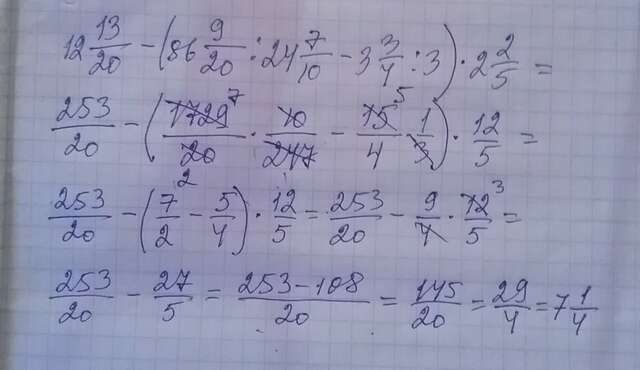 12 13/20 − (86 9/20 : 24 7/10 − 3 3/4 : 3) · 2 2/5 =
253/20 − (1729 7/20 · 10/247 − 15 5/4 · 1/3) · 12/5 =
253/20 − (7/2 2 − 5/4) · 12/5 = 253/20 − 9/4 · 12 3/5 =
253/20 − 27/5 = 253−108/20 = 145/20 = 29/4 = 7 1/4